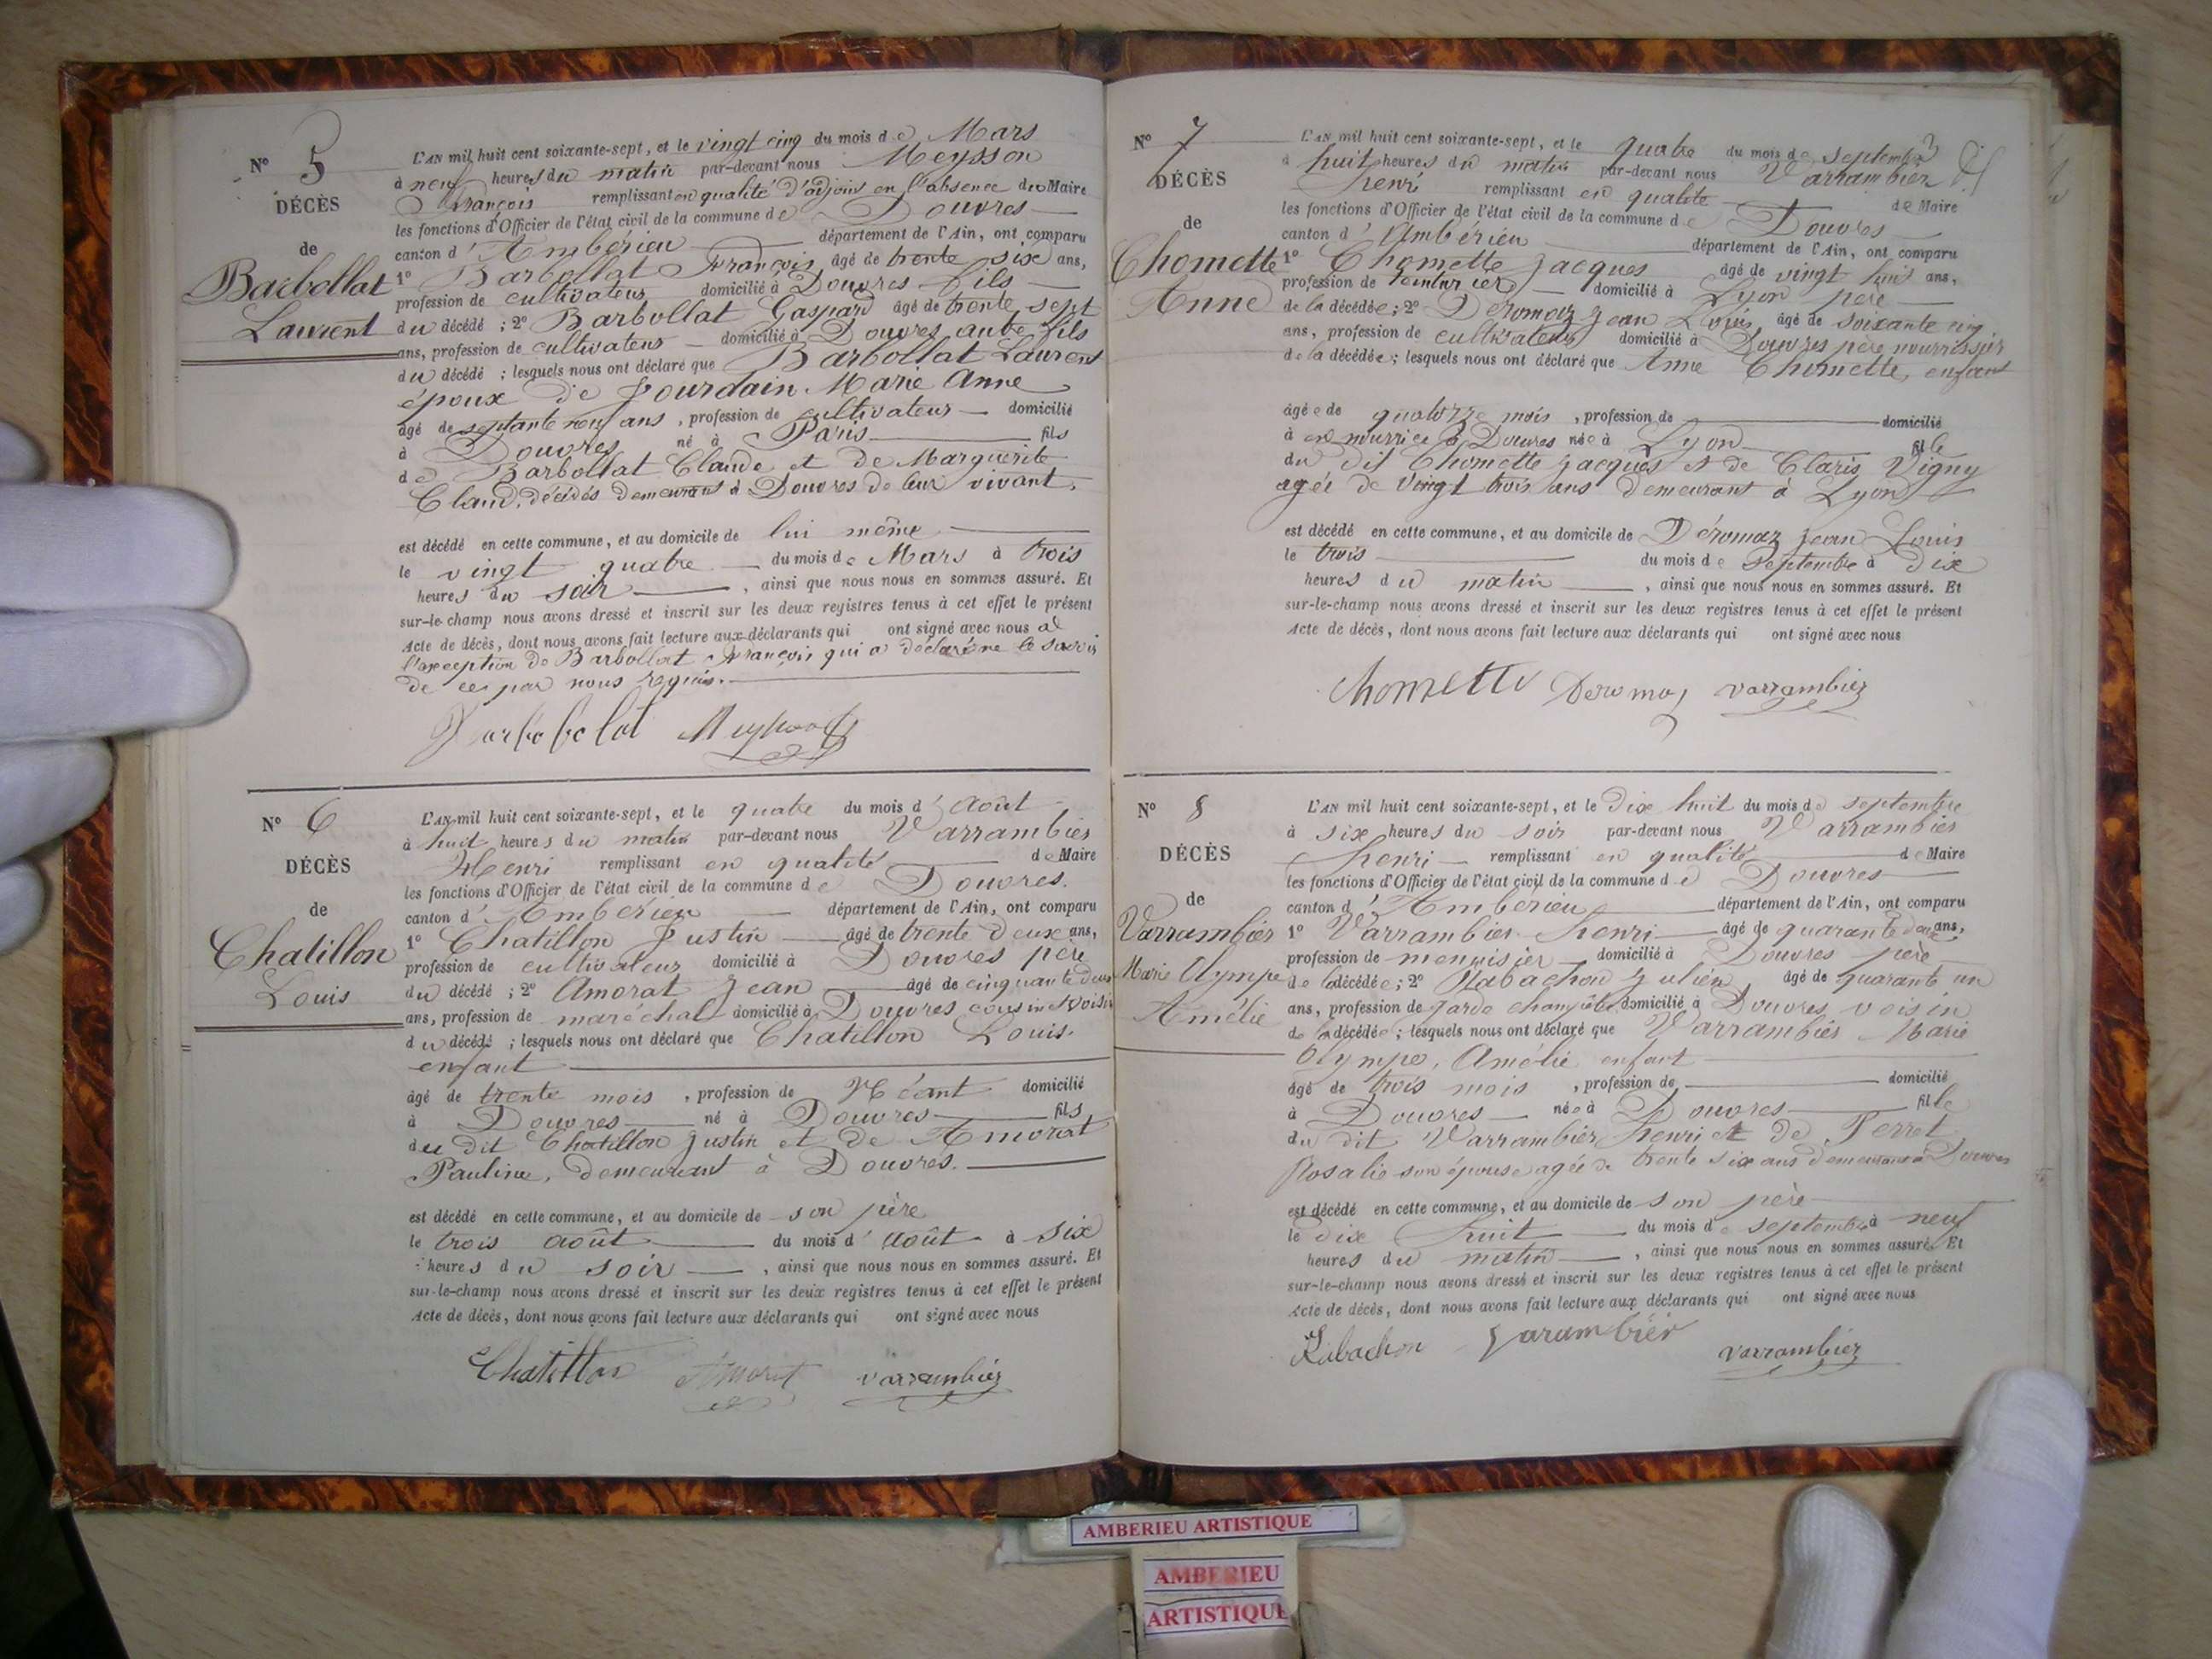 N° 5
DÉCÈS
de
Barbollat
Laurent
L'AN mil huit cent soixante-sept, et le vingt cinq du mois de Mars
à neuf heures du matin par-devant nous Meysson
François remplissant en qualité d'adjoint en l'absence du Maire
les fonctions d'Officier de l'état civil de la commune de Douvres
canton d'Ambérieu département de l'Ain, ont comparu
1° Barbollat François âgé de trente six ans,
profession de cultivateur domicilié à Douvres fils
du décédé ; 2° Barbollat Gaspard âgé de trente sept
ans, profession de cultivateur domicilié à Douvres autre fils
du décédé ; lesquels nous ont déclaré que Barbollat Laurent
époux de Jourdain Marie Anne
âgé de septante neuf ans, profession de cultivateur domicilié
à Douvres né à Paris fils
de Barbollat Claude et de Marguerite
Claud, décédés demeurant à Douvres de leur vivant.
est décédé en cette commune, et au domicile de lui même
le vingt quatre du mois de Mars à trois
heures du soir, ainsi que nous nous en sommes assuré. Et
sur-le-champ nous avons dressé et inscrit sur les deux registres tenus à cet effet le présent
Acte de décès, dont nous avons fait lecture aux déclarants qui ont signé avec nous à
l'exception de Barbollat François qui a déclaré ne le savoir
de ce par nous requis.
N° 6
DÉCÈS
de
Chatillon
Louis
L'AN mil huit cent soixante-sept, et le quatre du mois d'août
à huit heures du matin par-devant nous Varrambier
Henri remplissant en qualité de Maire
les fonctions d'Officier de l'état civil de la commune de Douvres.
canton d'Ambérieu département de l'Ain, ont comparu
1° Chatillon Justin âgé de trente deux ans,
profession de cultivateur domicilié à Douvres père
du décédé ; 2° Amorat Jean âgé de cinquante deux
ans, profession de maréchal domicilié à Douvres cousin & voisin
du décédé ; lesquels nous ont déclaré que Chatillon Louis.
enfant
âgé de trente mois, profession de Néant domicilié
à Douvres né à Douvres fils
du dit Chatillon Justin et de Amorat
Pauline, demeurant à Douvres.
est décédé en cette commune, et au domicile de son père
le trois août du mois d'août à six
heures du soir, ainsi que nous nous en sommes assuré. Et
sur-le-champ nous avons dressé et inscrit sur les deux registres tenus à cet effet le présent
Acte de décès, dont nous avons fait lecture aux déclarants qui ont signé avec nous
Chatillon Amorat varrambier
N° 7
DÉCÈS
de
Chomette
Anne
L'AN mil huit cent soixante-sept, et le quatre du mois de septembre
à huit heures du matin par-devant nous Varrambier
henri remplissant en qualité de Maire
les fonctions d'Officier de l'état civil de la commune de Douvres
canton d'Ambérieu département de l'Ain, ont comparu
1° Chomette Jacques âgé de vingt huit ans,
profession de teinturier domicilié à Lyon père
de la décédée ; 2° Déromaz Jean Louis, âgé de soixante cinq
ans, profession de cultivateur domicilié à Douvres père nourrissier
de la décédée ; lesquels nous ont déclaré que Anne Chomette, enfant
âgée de quatorze mois, profession de domicilié
à en nourrice à Douvres née à Lyon fille
du dit Chomette Jacques et de Claris Vigny
agée de vingt trois ans demeurant à Lyon
est décédé en cette commune, et au domicile de Déromaz Jean Louis
le trois du mois de septembre à dix
heures du matin, ainsi que nous nous en sommes assuré. Et
sur-le-champ nous avons dressé et inscrit sur les deux registres tenus à cet effet le présent
Acte de décès, dont nous avons fait lecture aux déclarants qui ont signé avec nous
Chomette Deromaz varrambier
N° 8
DÉCÈS
de
Varrambier
Marie Olympe
Amélie
L'AN mil huit cent soixante-sept, et le dix huit du mois de septembre
à six heures du soir par-devant nous Varrambier
henri remplissant en qualité de Maire
les fonctions d'Officier de l'état civil de la commune de Douvres
canton d'Ambérieu département de l'Ain, ont comparu
1° Varrambier henri âgé de quarante deux ans,
profession de menuisier domicilié à Douvres père
de la décédée ; 2° Rabachon Julien âgé de quarante un
ans, profession de garde champêtre domicilié à Douvres voisin
de la décédée ; lesquels nous ont déclaré que Varrambier Marie
Olympe, Amélie enfant
âgé de trois mois, profession de domicilié
à Douvres née à Douvres fille
du dit Varrambier henri et de Perret
Rosalie son épouse agée de trente six ans demeurant à Douvres
est décédé en cette commune, et au domicile de son père
le dix huit du mois de septembre à neuf
heures du matin, ainsi que nous nous en sommes assuré. Et
sur-le-champ nous avons dressé et inscrit sur les deux registres tenus à cet effet le présent
Acte de décès, dont nous avons fait lecture aux déclarants qui ont signé avec nous
Rabachon varambier varrambier
AMBERIEU ARTISTIQUE
AMBERIEU
ARTISTIQUE